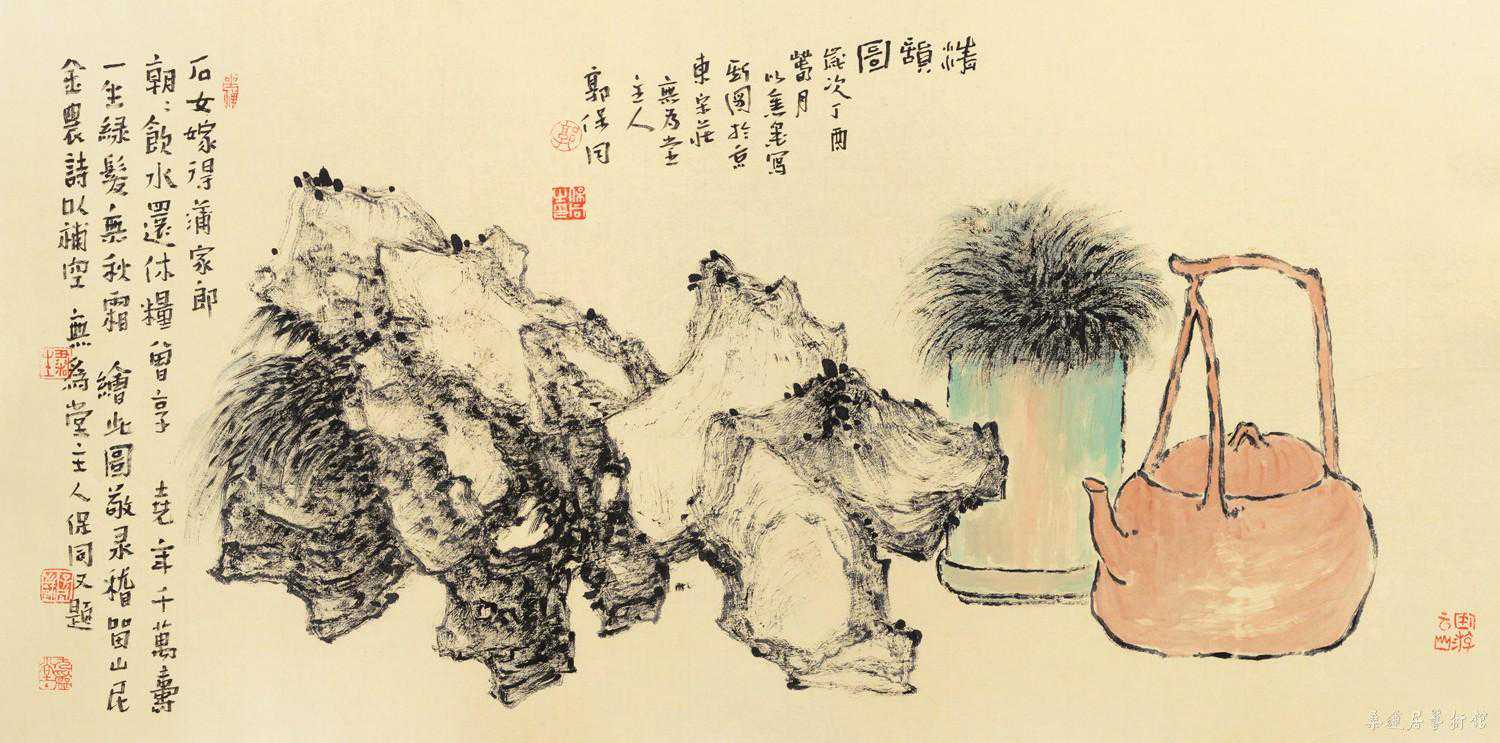 清圖
歲次丁酉
鶯月
以焦墨寫
斯圖於京
東宋莊
無為堂
主人
郭保同
石女嫁得蒲家郎
朝:飲水還休糧曾享 堯年千萬壽
一生綠髮無秋霜 繪此圖敬录稽留山民
金農詩以補空 無為堂主人保同又題
郭
臥游云山
桑蓮居藝術館